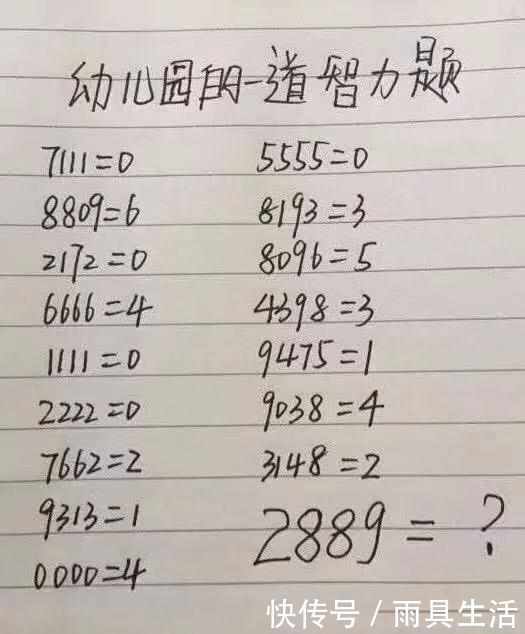 幼儿园的一道智力题
7111=0 5555=0
8809=6 8193=3
2172=0 8096=5
6666=4 4398=3
1111=0 9475=1
2222=0 9038=4
7662=2 3148=2
9313=1 2889=?
0000=4
快传号/雨具生活